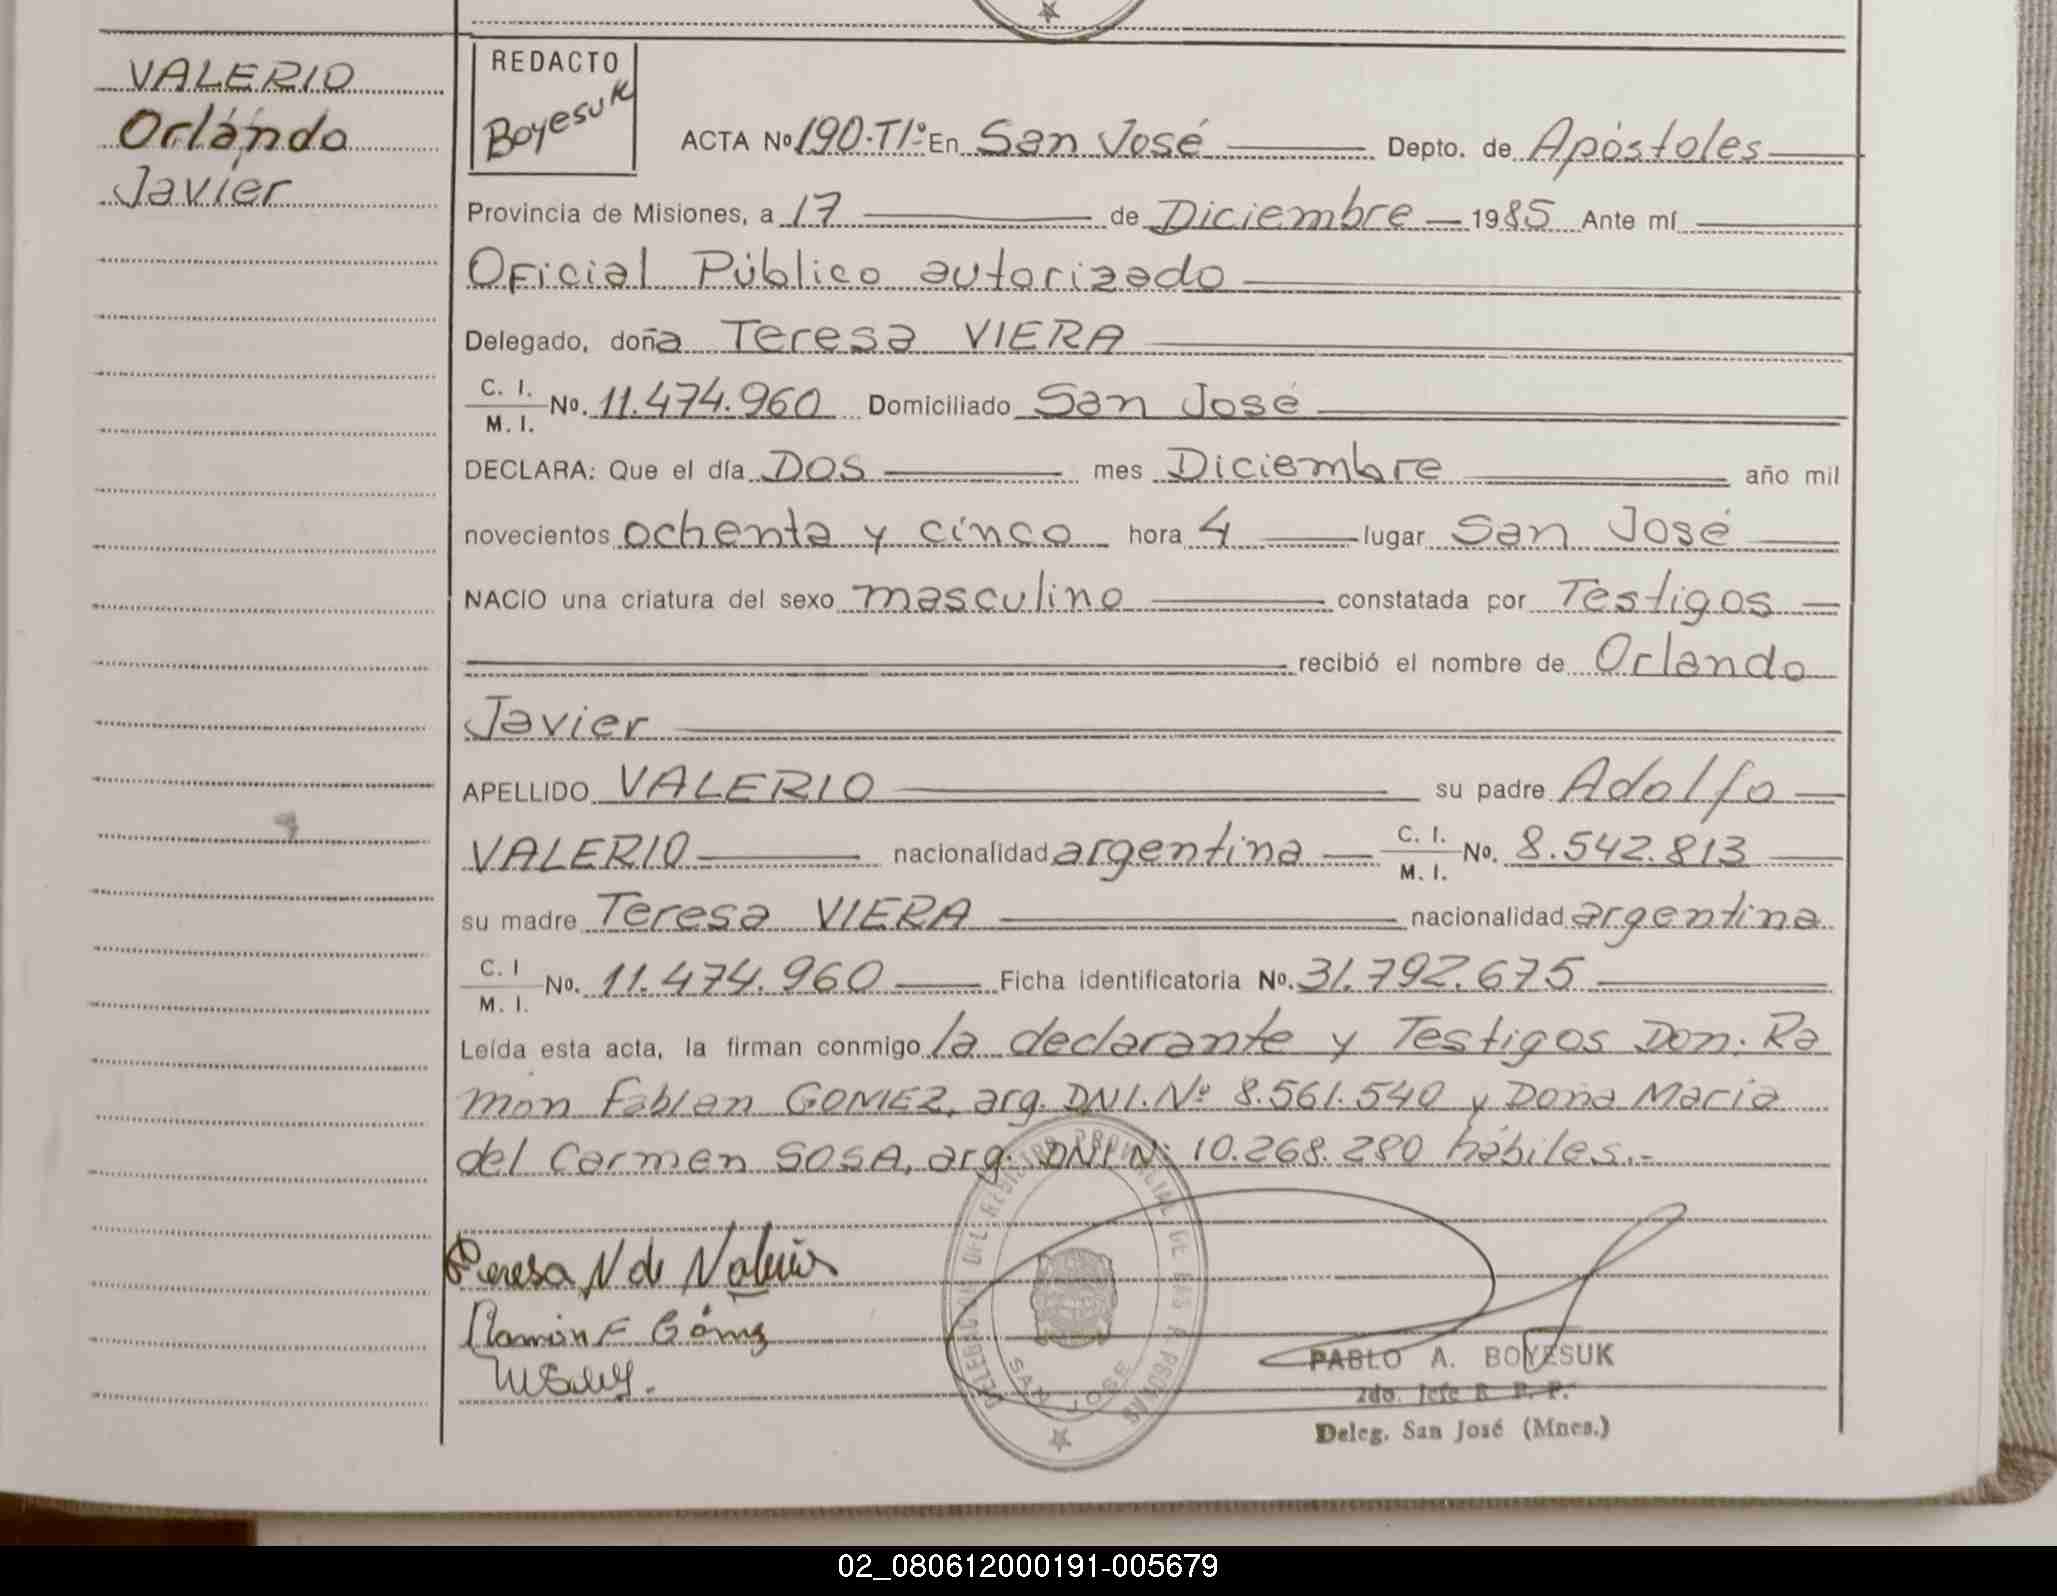 VALERIO
Orlando
Javier
REDACTO
Boyesuk
ACTA Nº 190-TIº En San José Depto. de Apóstoles
Provincia de Misiones, a 17 de Diciembre 1985 Ante mí
Oficial Público autorizado
Delegado, doña Teresa VIERA
C. I. M. I. No. 11.474.960 Domiciliado San José
DECLARA: Que el día DOS mes Diciembre año mil
novecientos ochenta y cinco hora 4 lugar San José
NACIO una criatura del sexo masculino constatada por Testigos
recibió el nombre de Orlando
Javier
APELLIDO VALERIO su padre Adolfo
VALERIO nacionalidad argentina C. I. M. I. No. 8.542.813
su madre Teresa VIERA nacionalidad argentina
C. I M. I. No. 11.474.960 Ficha identificatoria No. 31.792.675
Leída esta acta, la firman conmigo la declarante y Testigos Don. Ra
món Fabian GOMEZ, arg. DNI. Nº 8.561.540 y Doña Maria
del Carmen SOSA, arg. DNI Nº 10.268.280 hábiles.-
Teresa V de Valerio
Ramón F Gómez
DELEGACION DEL REGISTRO PROVINCIAL DE LAS PERSONAS
SAN JOSE
PABLO A. BOYESUK
2do. Jefe R. P. P.
Deleg. San José (Mnes.)
02_080612000191-005679